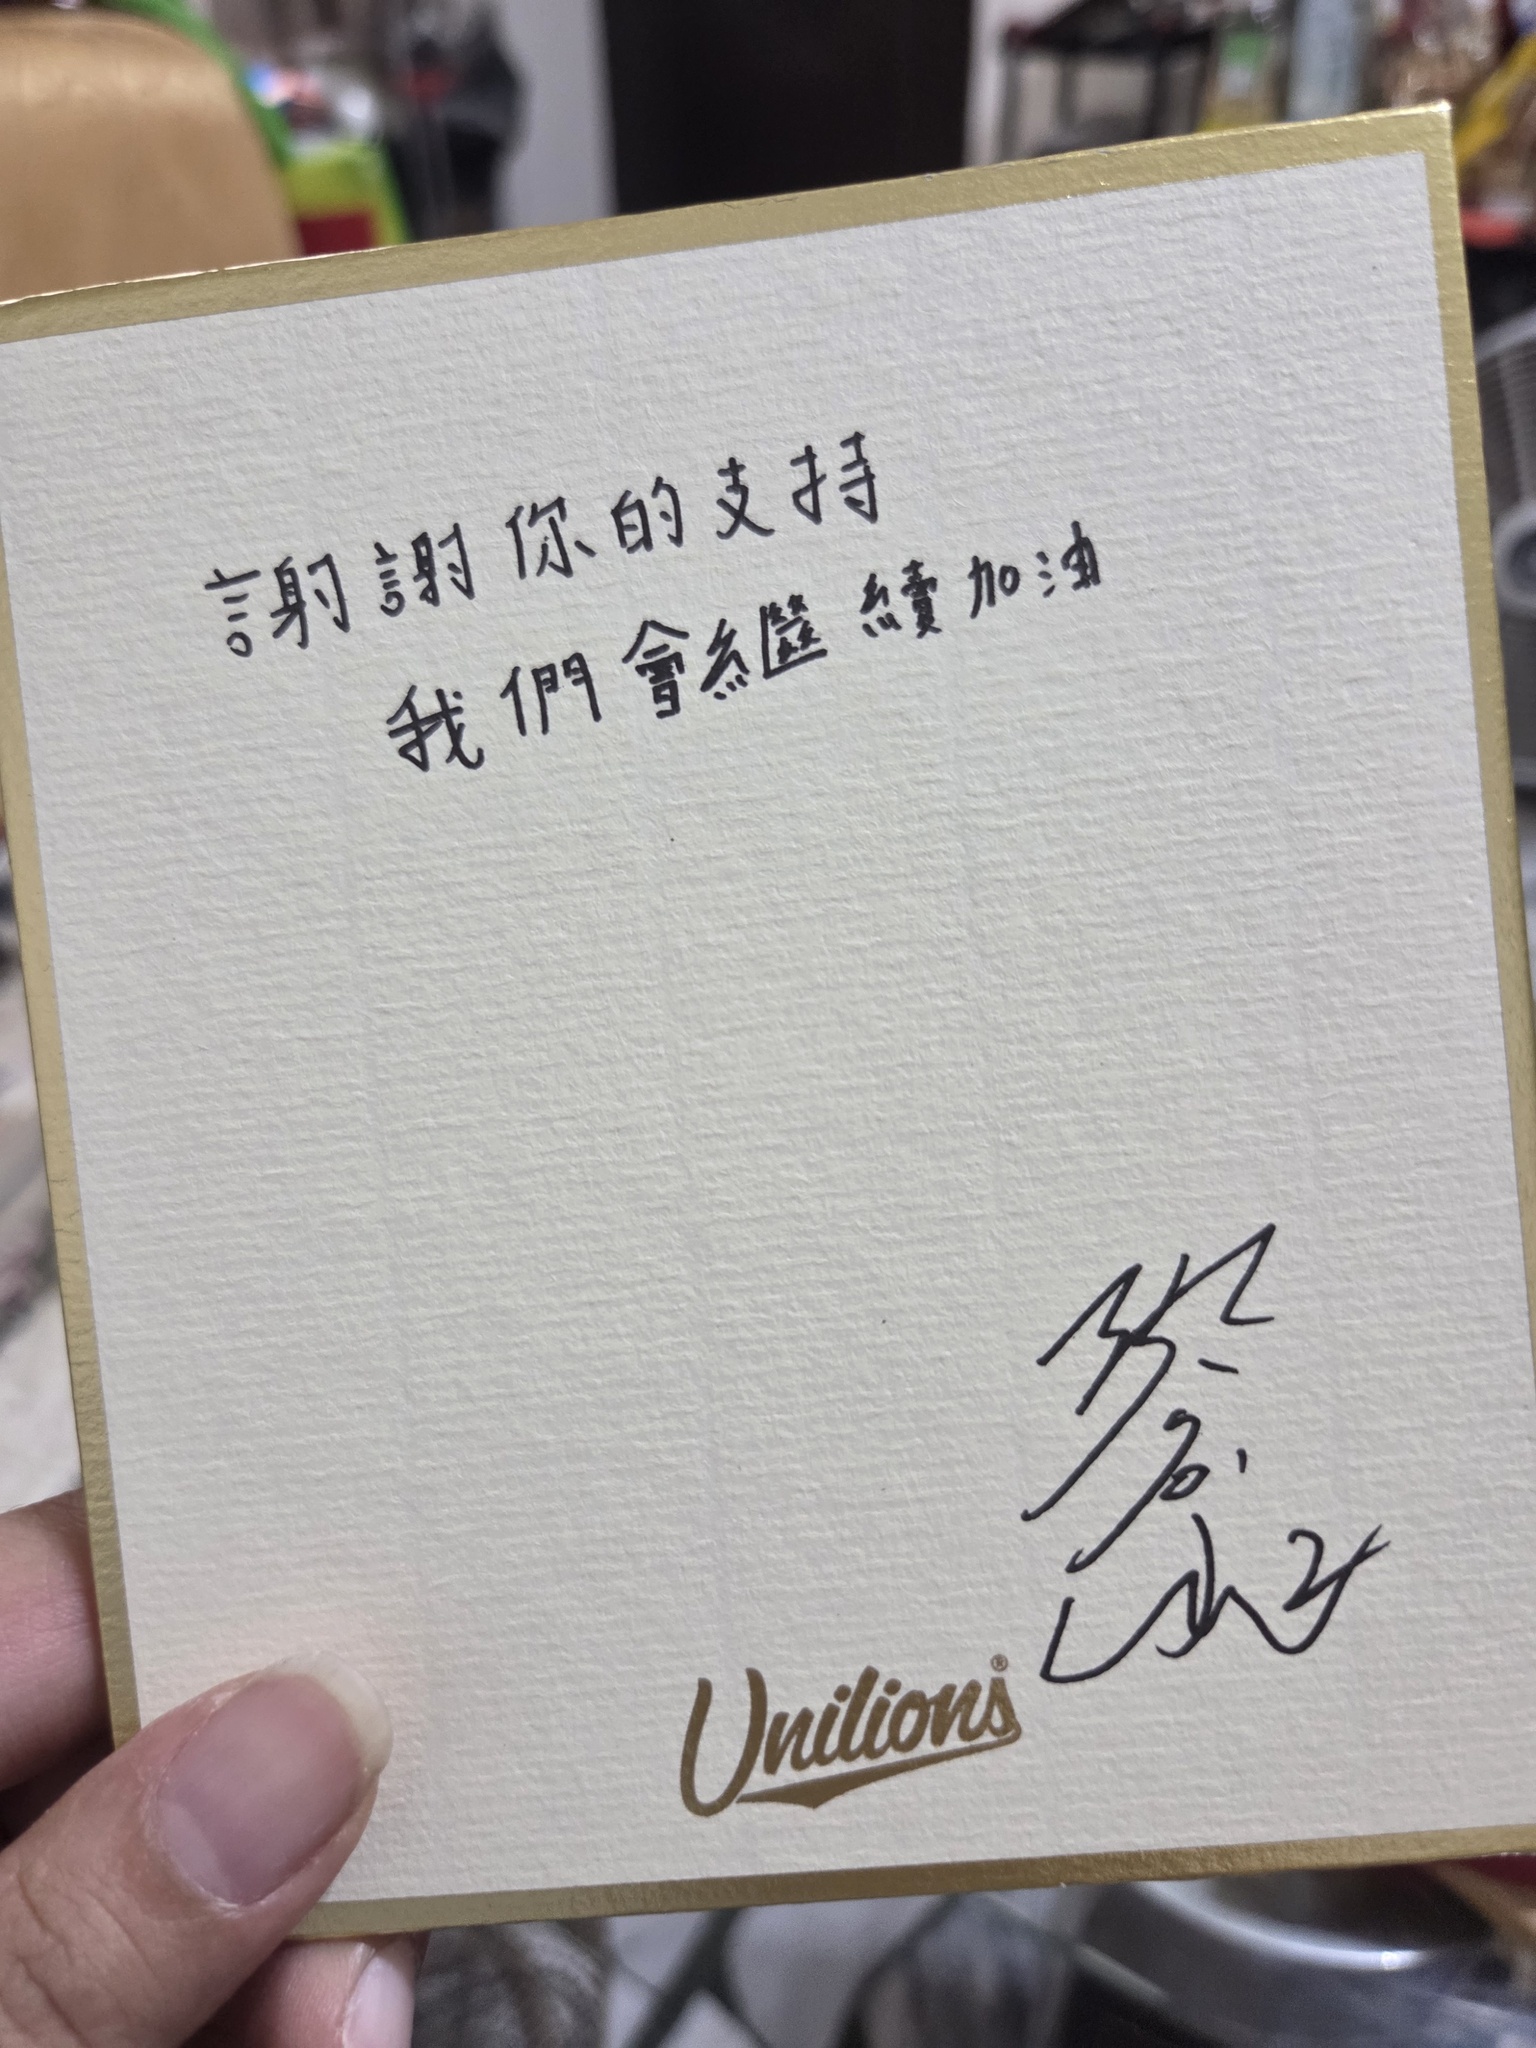 謝謝你的支持
我們會繼續加油
Unilions®